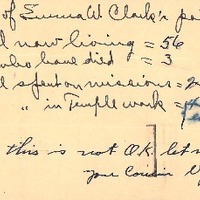 of Emma W Clark's pa
l now living = 56
who have died = 3
d spent on missions = 2
" in Temple work =
this is not O.K. let m
your Cousin